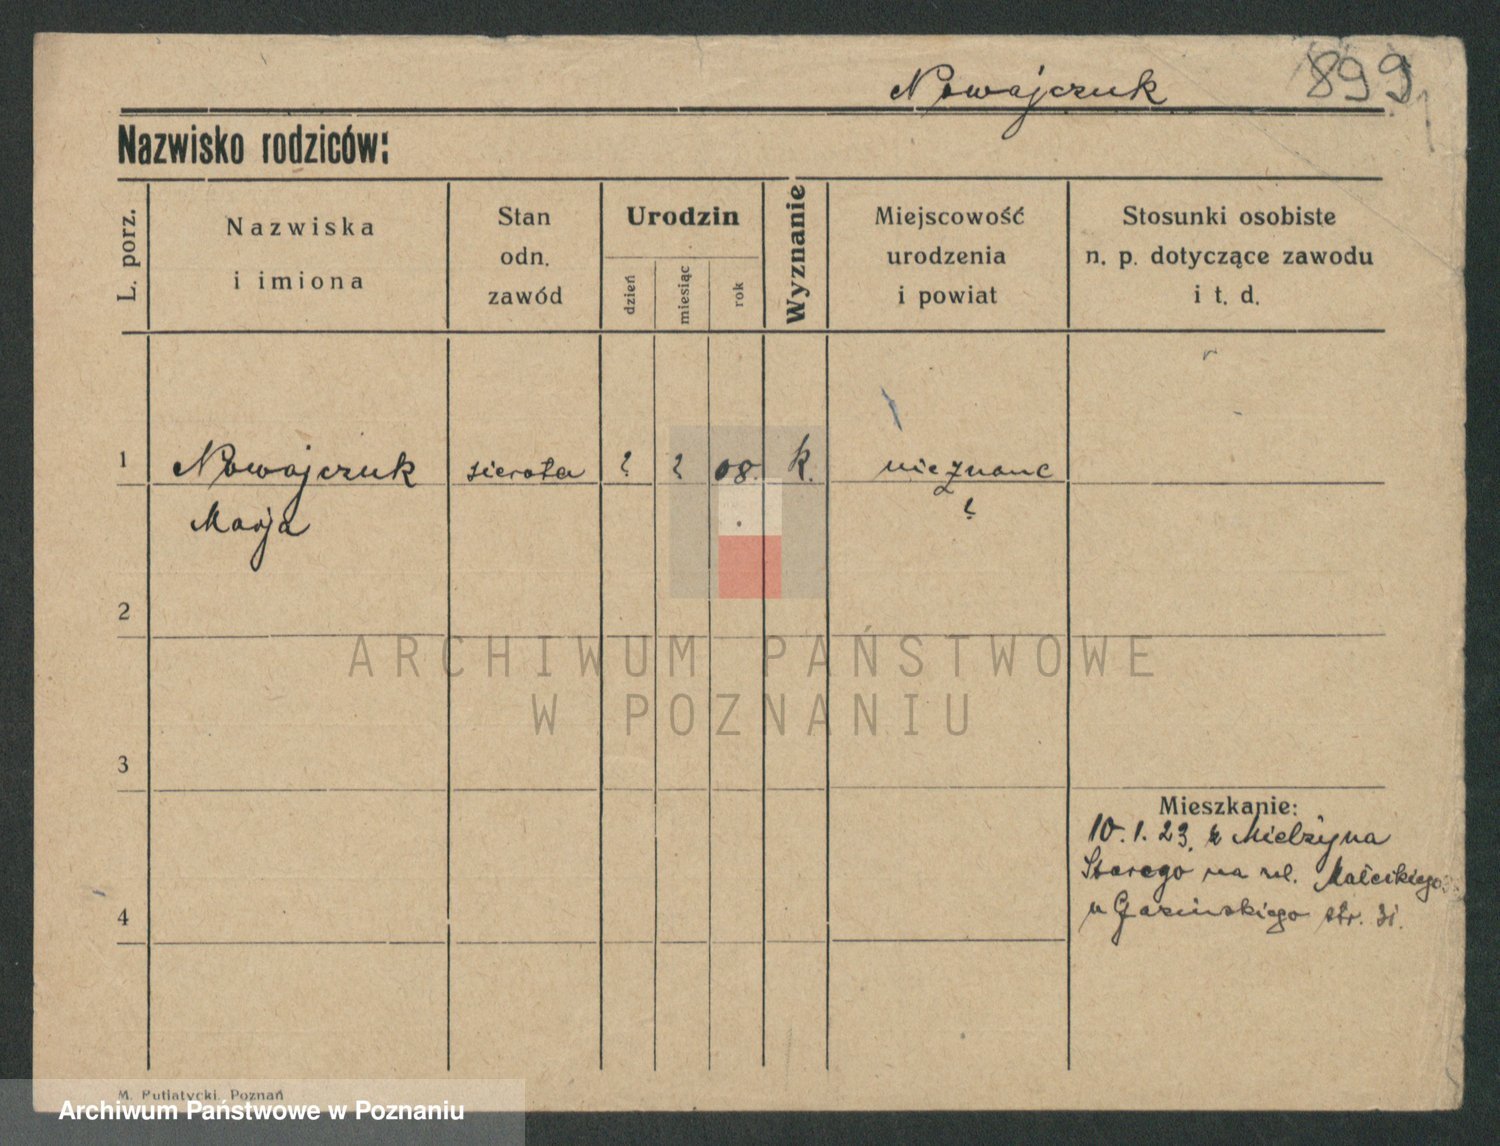 Nowajczuk
899
Nazwisko rodziców:
L. porz.
Nazwiska
i imiona
Stan
odn.
zawód
Urodzin
dzień
miesiąc
rok
Wyznanie
Miejscowość
urodzenia
i powiat
Stosunki osobiste
n. p. dotyczące zawodu
i t. d.
1
Nowajczuk
sierota
?
?
08.
k.
nieznane
Marja
?
2
ARCHIWUM PAŃSTWOWE
W POZNANIU
3
Mieszkanie:
10.1.23. z Mielżyna
Starego na ul. Małeckiego
u str.
4
M. Putiatycki, Poznań
Archiwum Państwowe w Poznaniu